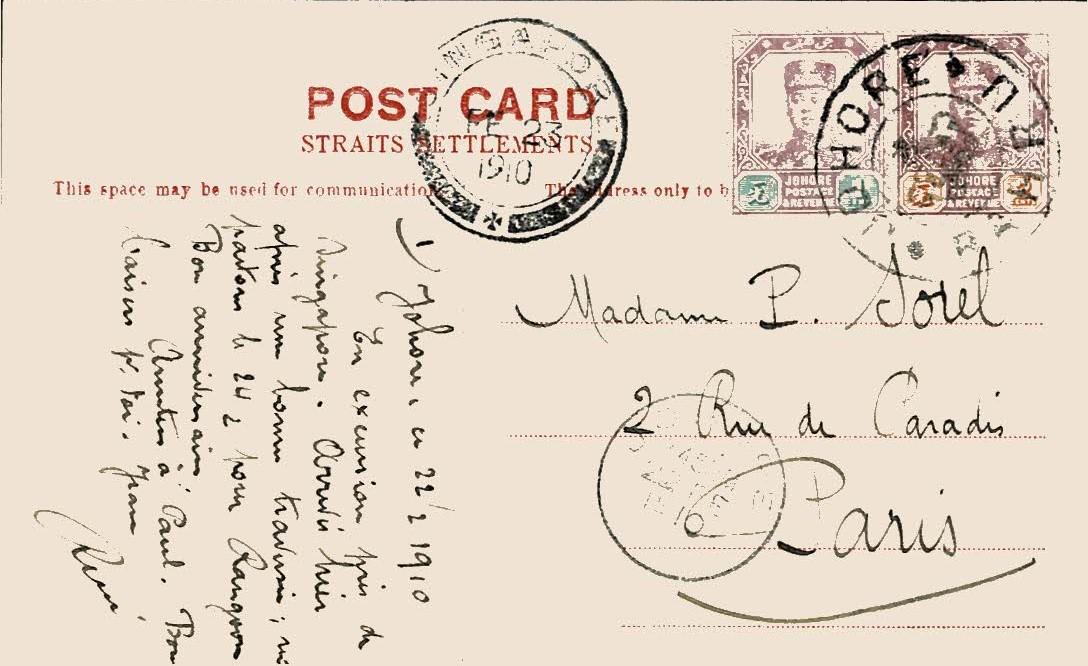 POST CARD
STRAITS SETTLEMENTS.
This space may be used for communication
The address only to b
SINGAPORE
FE 23
1910
JOHORE
POSTAGE
& REVENUE
JOHORE
POSTAGE
& REVENUE
CENTS
JOHORE
Madame P. Sorel
2 Rue de Paradis
Paris
1) Johore, ce 22/2 1910
En excursion près de
Singapore. Arrivés hier
après une bonne traversée ;
partons le 24 pour Rangoon
Bon anniversaire
Amitiés à Paul. Bon
baisers p. toi.